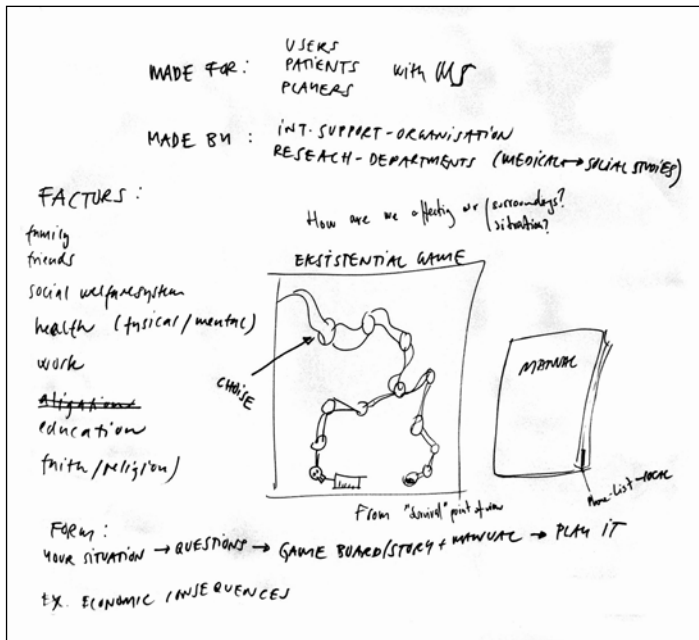 USERS
MADE FOR: PATIENTS with MS
PLAYERS
MADE BY: INT. SUPPORT-ORGANISATION
RESEACH-DEPARTMENTS (MEDICAL↔SOCIAL STUDIES)
FACTORS:
How are we affecting our surroundings?
situation?
family
friends
social welfaresystem
health (fysical/mental)
work
education
faith/religion)
EKSISTENTIAL GAME
CHOISE
MANUAL
From "survival" point of view
FORM:
YOUR SITUATION → QUESTIONS → GAME BOARD/STORY + MANUAL → PLAY IT
EX. ECONOMIC CONSEQUENCES